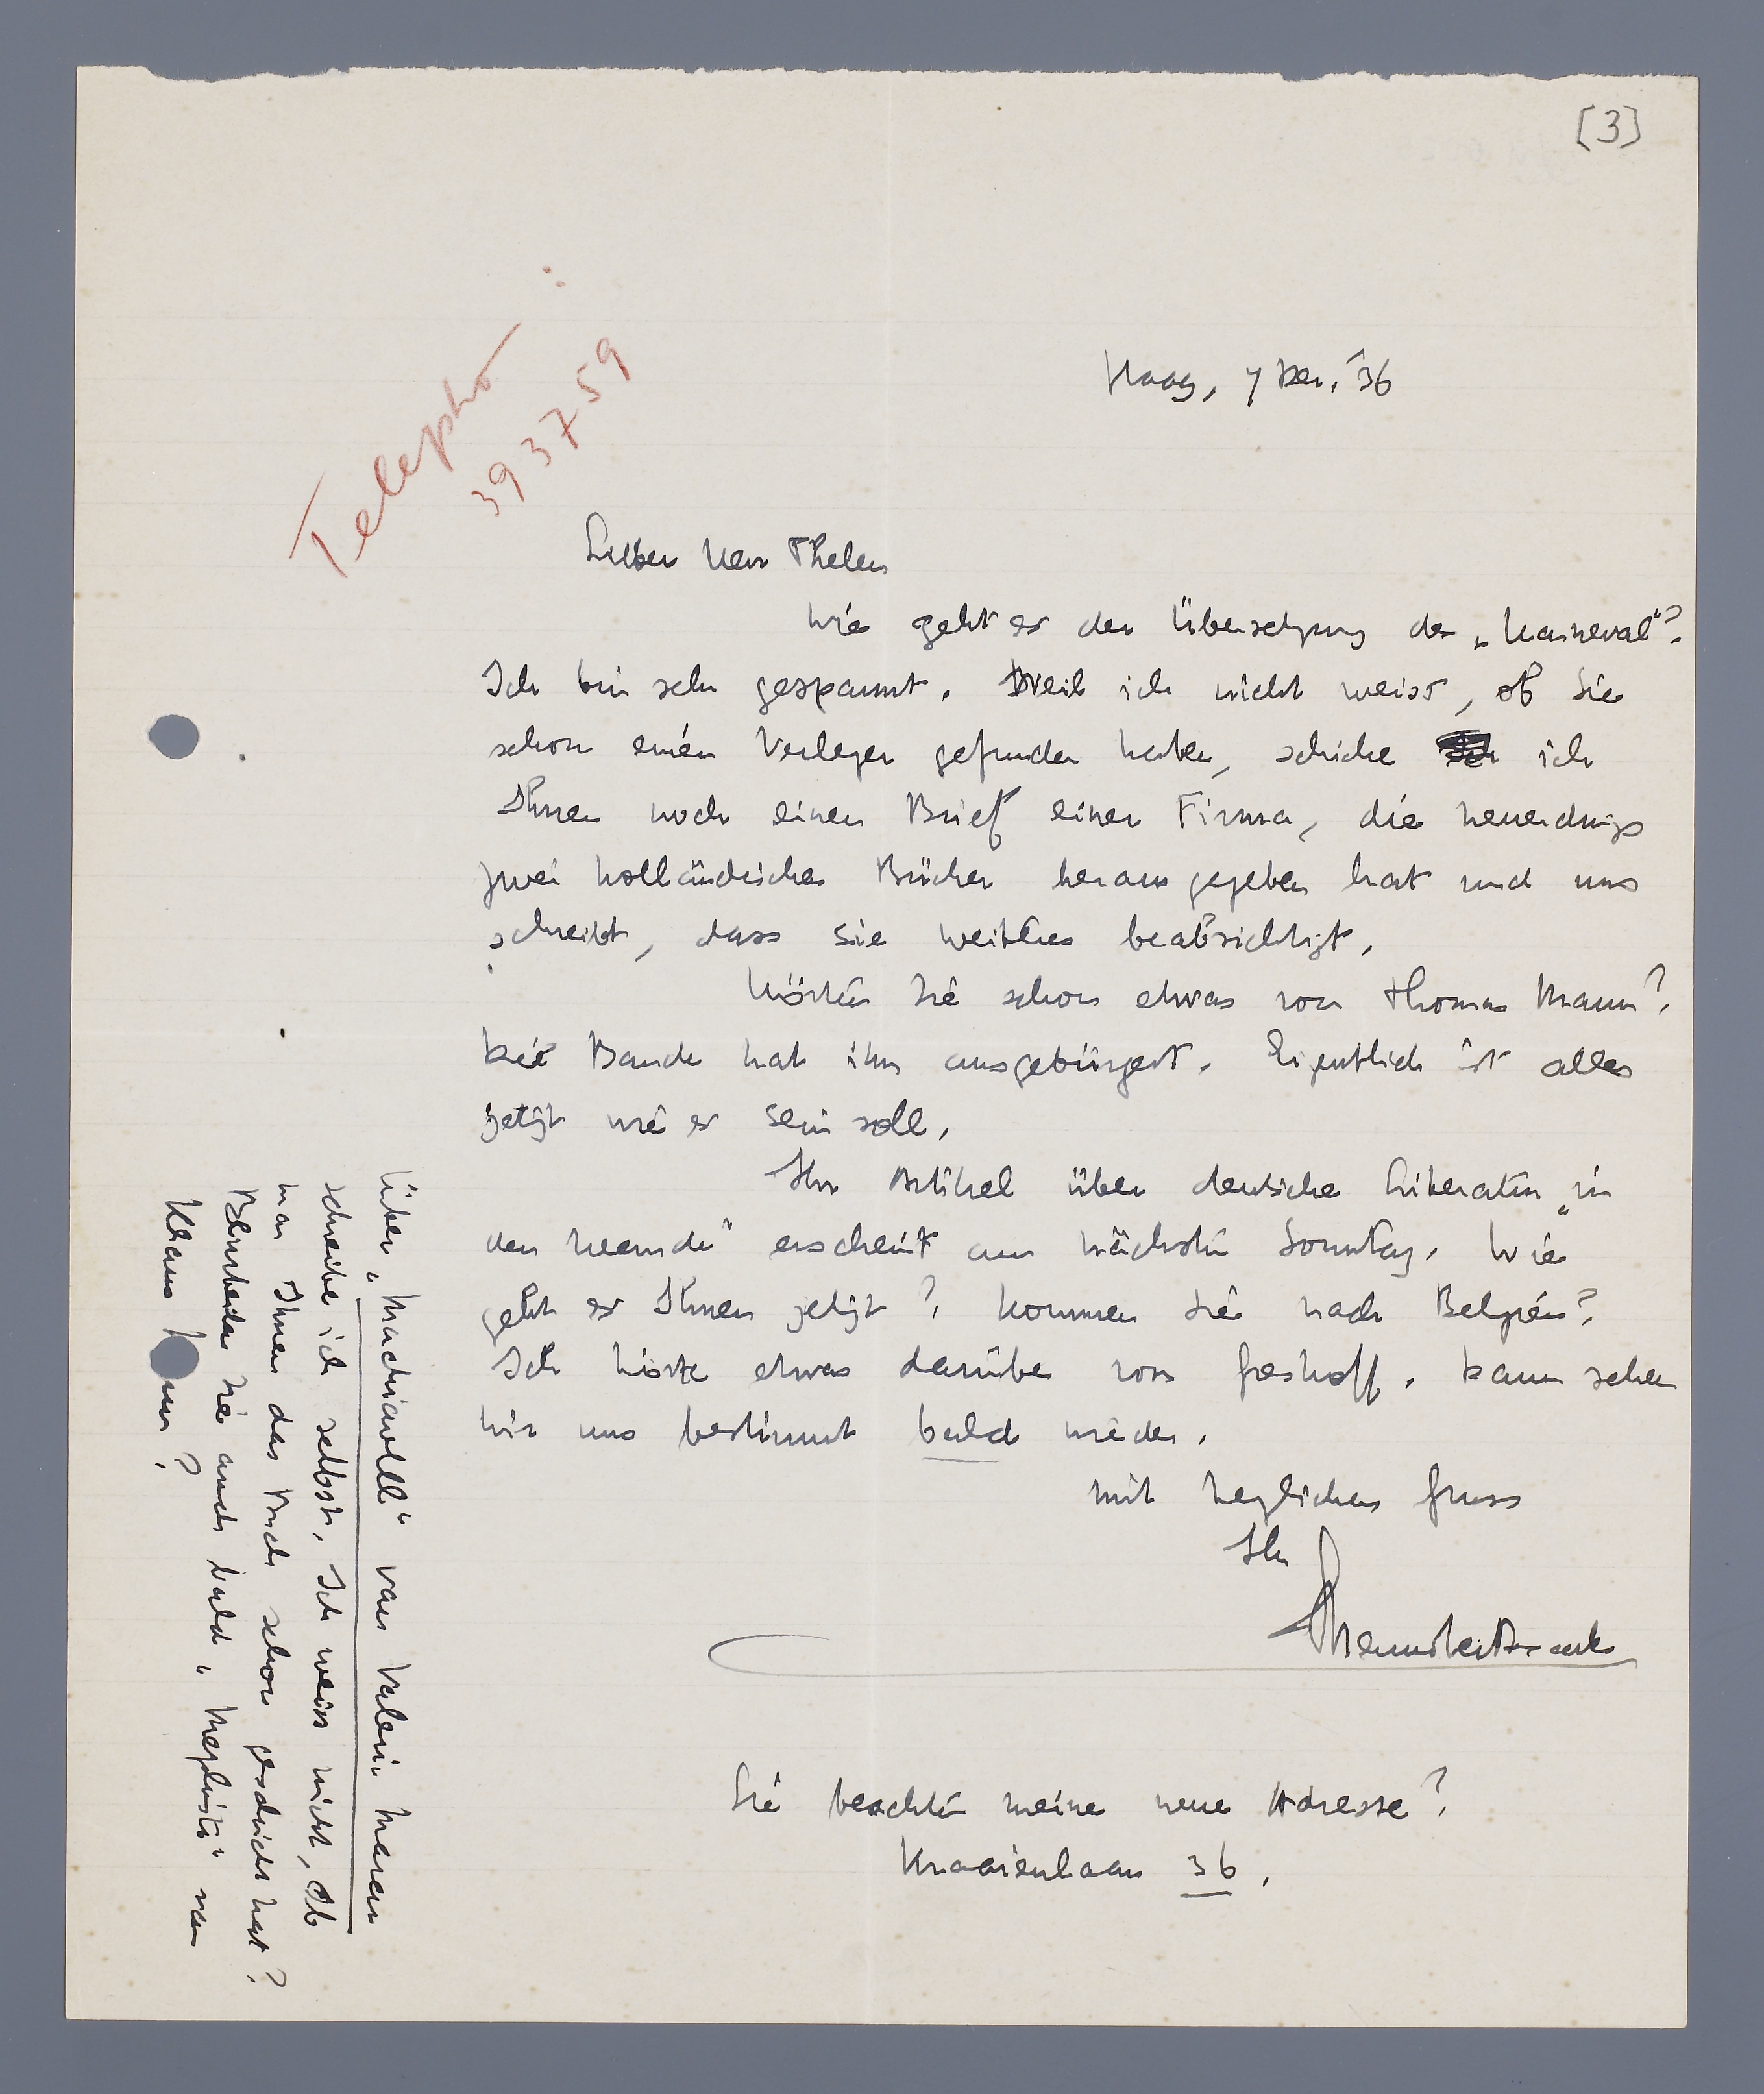 [3]
Telepho
393759
Haag, 7 Dez. '36
Lieber Herr Thelen
Wie geht es der Übersetzung des „Karneval"?
Ich bin sehr gespannt. Weil ich nicht weiss, ob Sie
schon einen Verleger gefunden haben, schicke ich
Ihnen noch einen Brief einer Firma, die neuerdings
zwei holländische Bücher herausgegeben hat und uns
schreibt, dass sie weitere beabsichtigt.
Hörten Sie schon etwas von Thomas Mann?
Die Bande hat ihn ausgebürgert. Eigentlich ist alles
jetzt wie es sein soll.
Ihr Artikel über deutsche Literatur „in
der Fremde" erscheint am nächsten Sonntag. Wie
geht es Ihnen jetzt? Kommen Sie nach Belgien?
Ich hörte etwas darüber von Greshoff. Dann sehen
wir uns bestimmt bald wieder.
Mit herzlichem Gruss
Ihr
Menno ter Braak
Sie beachten meine neue Adresse?
Kraaienlaan 36.
Über „Machiavell" von Valeriu Marcu
schreibe ich selbst. Ich weiss nicht, ob
man Ihnen das Buch schon geschickt hat?
Beurteilen Sie auch bald „Mephisto" von
Klaus Mann?